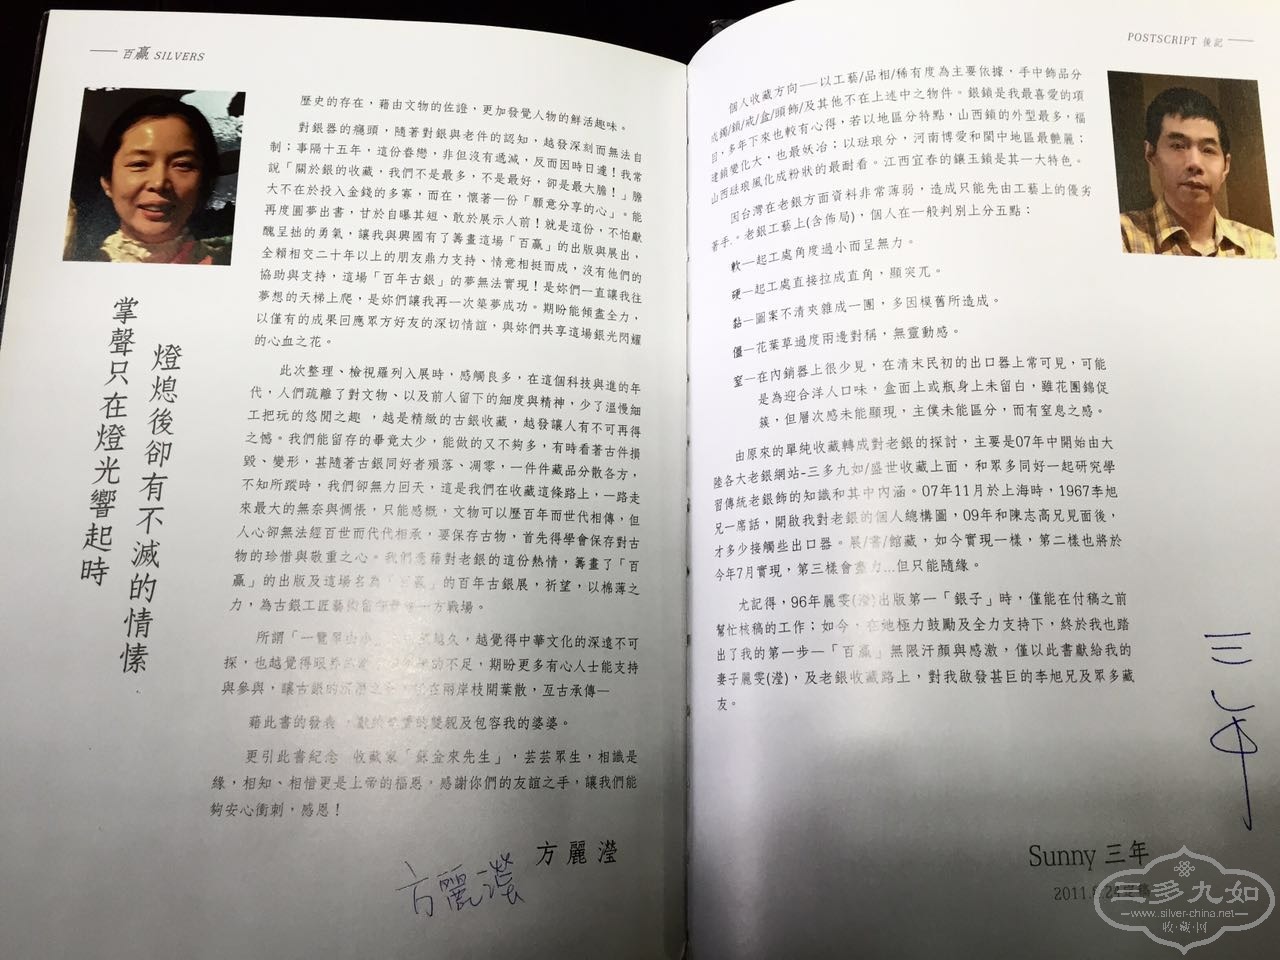 百贏 SILVERS
掌聲只在燈光響起時
燈熄後卻有不滅的情愫
歷史的存在，藉由文物的佐證、更加發覺人物的鮮活趣味。
對銀器的癮頭，隨著對銀與老件的認知，越發深刻而無法自
制；事隔十五年，這份眷戀，非但沒有遞減，反而因時日遽！我常
說「關於銀的收藏，我們不是最多，不是最好，卻是最大膽！」膽
大不在於投入金錢的多寡，而在，懷著一份「願意分享的心」。能
再度圓夢出書，甘於自曝其短、敢於展示人前！就是這份，不怕獻
醜呈拙的勇氣，讓我與興國有了籌畫這場「百贏」的出版與展出，
全賴相交二十年以上的朋友鼎力支持、情意相挺而成，沒有他們的
協助與支持，這場「百年古銀」的夢無法實現！是妳們一直讓我往
夢想的天梯上爬，是妳們讓我再一次築夢成功。期盼能傾盡全力，
以僅有的成果回應眾方好友的深切情誼，與妳們共享這場銀光閃耀
的心血之花。
此次整理、檢視羅列入展時，感觸良多，在這個科技與進的年
代，人們疏離了對文物、以及前人留下的細度與精神，少了溫慢細
工把玩的悠閒之趣，越是精緻的古銀收藏，越發讓人有不可再得
之憾。我們能留存的畢竟太少，能做的又不夠多，有時看著古件損
毀、變形，甚隨著古銀同好者殞落、凋零，一件件藏品分散各方，
不知所蹤時，我們卻無力回天，這是我們在收藏這條路上，一路走
來最大的無奈與惆悵，只能感慨，文物可以歷百年而世代相傳，但
人心卻無法經百世而代代相承，要保存古物，首先得學會保存對古
物的珍惜與敬重之心。我們憑藉對老銀的這份熱情，籌畫了「百
贏」的出版及這場名為「百贏」的百年古銀展，祈望，以棉薄之
力，為古銀工匠藝術留一方戰場。
所謂「一覽眾山小」越久，越覺得中華文化的深遠不可
探，也越覺得眼界不足，期盼更多有心人士能支持
與參與，讓古銀的在兩岸枝開葉散，亙古承傳—
藉此書的發表，獻給的雙親及包容我的婆婆。
更引此書紀念 收藏家「蘇金來先生」，芸芸眾生，相識是
緣，相知、相惜更是上帝的福恩。感謝你們的友誼之手，讓我們能
夠安心衝刺，感恩！
方麗瀅
方麗瀅
POSTSCRIPT 後記
個人收藏方向——以工藝/品相/稀有度為主要依據，手中飾品分
成鐲/鎖/戒/盒/頭飾/及其他不在上述中之物件。銀鎖是我最喜愛的項
目，多年下來也較有心得，若以地區分特點，山西鎖的外型最多，福
建鎖變化大，也最妖冶；以琺瑯分，河南博愛和閩中地區最艷麗；
山西琺瑯風化成粉狀的最耐看。江西宜春的鑲玉鎖是其一大特色。
因台灣在老銀方面資料非常薄弱，造成只能先由工藝上的優劣
著手.。老銀工藝上(含佈局)，個人在一般判別上分五點：
軟—起工處角度過小而呈無力。
硬—起工處直接拉成直角，顯突兀。
黏—圖案不清夾雜成一團，多因模舊所造成。
僵—花葉草過度兩邊對稱，無靈動感。
窒—在內銷器上很少見，在清末民初的出口器上常可見，可能
是為迎合洋人口味，盒面上或瓶身上未留白，雖花團錦促
簇，但層次感未能顯現，主僕未能區分，而有窒息之感。
由原來的單純收藏轉成對老銀的探討，主要是07年中開始由大
陸各大老銀網站-三多九如/盛世收藏上面，和眾多同好一起研究學
習傳統老銀飾的知識和其中內涵。07年11月於上海時，1967李旭
兄一席話，開啟我對老銀的個人總構圖，09年和陳志高兄見面後，
才多少接觸些出口器。展/書/館藏，如今實現一樣，第二樣也將於
今年7月實現，第三樣會盡力...但只能隨緣。
尤記得，96年麗雯(瀅)出版第一「銀子」時，僅能在付稿之前
幫忙核稿的工作；如今，在她極力鼓勵及全力支持下，終於我也踏
出了我的第一步—「百贏」無限汗顏與感激，僅以此書獻給我的
妻子麗雯(瀅)，及老銀收藏路上，對我啟發甚巨的李旭兄及眾多藏
友。
三年
Sunny 三年
2011.
三多九如
www.silver-china.net
收·藏·网